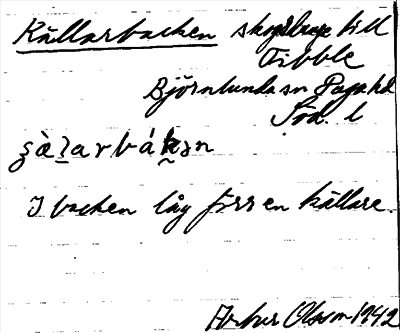 Källarbacken skogsbacke till
Tibble
Björnlunda sn Daga hd
Söd. l
I backen låg förr en källare.
Arthur Olsson 1942